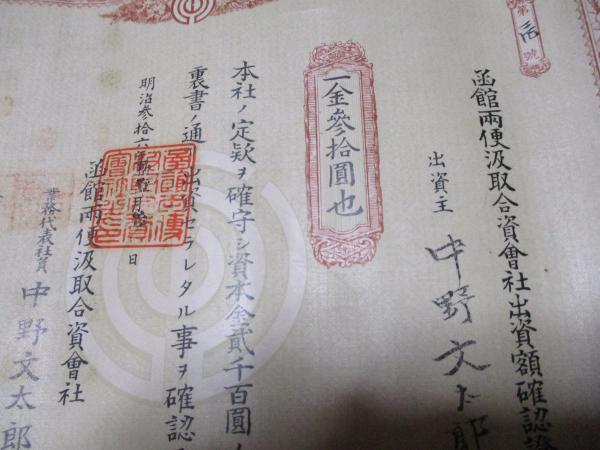 第 號
函館兩便汲取合資會社出資額確認證
出資主
中野文太郎
一金參拾圓也
本社ノ定款ヲ確守シ資本金貳千百圓ノ
裏書ノ通 出資セラレタル事ヲ確認
明治參拾六年 月 日
函館兩便汲取合資會社
業務代表社員 中野文太郎